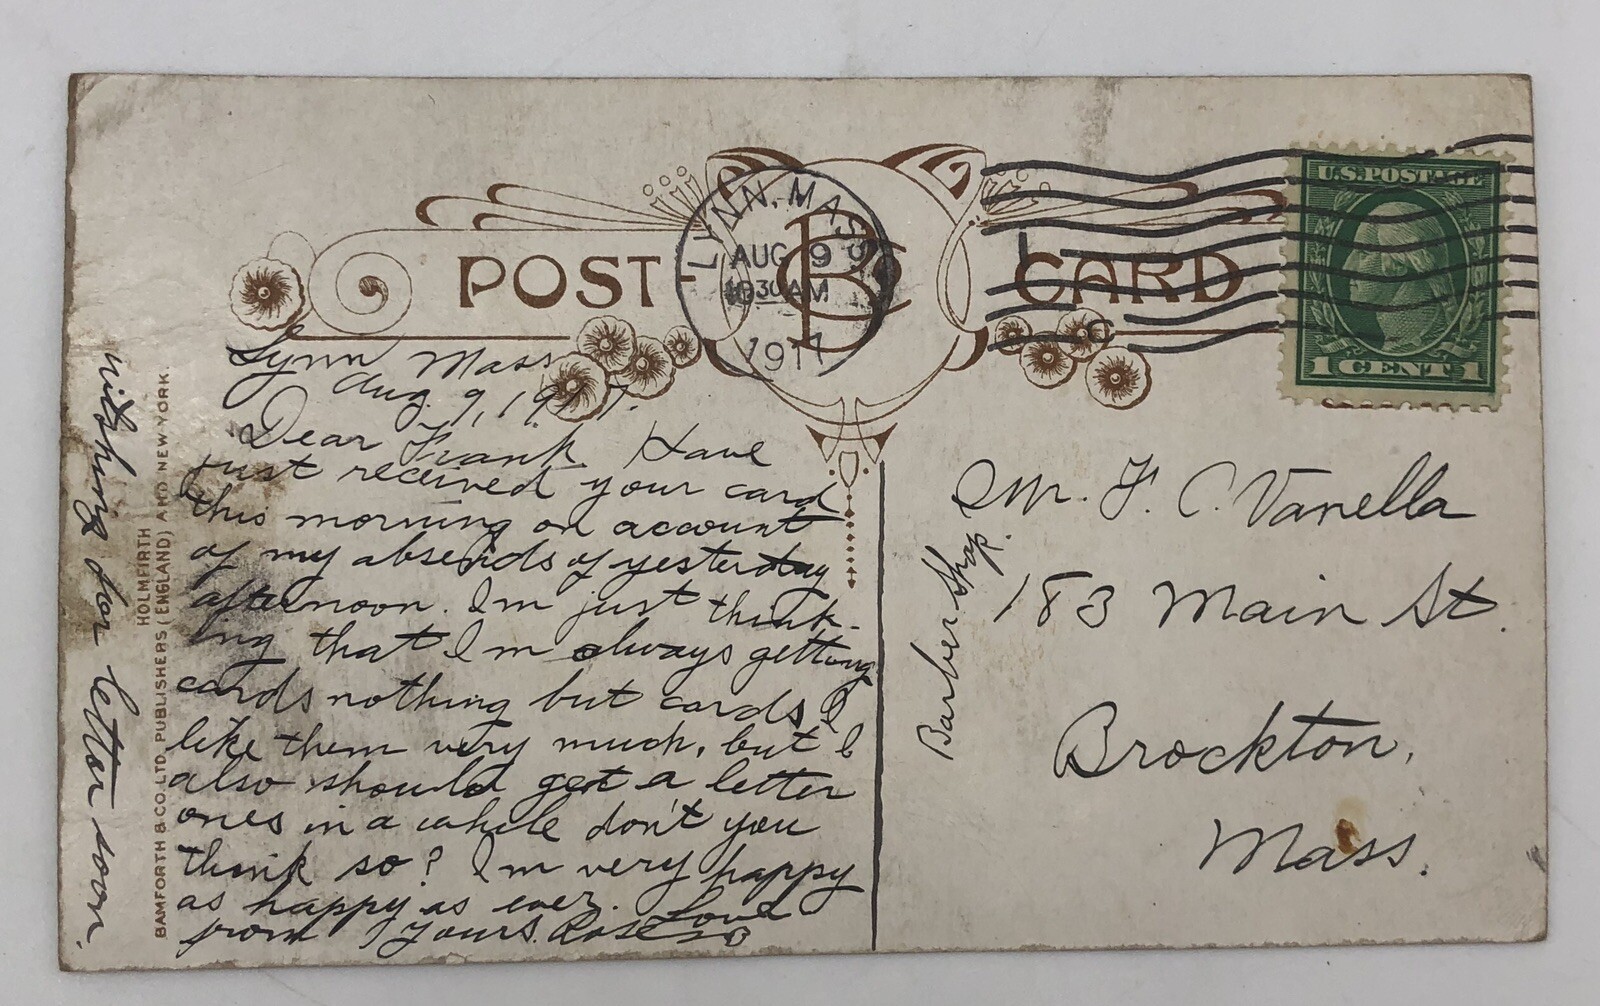 POST CARD
LYNN, MASS
AUG 9
10 30 AM
1917
U.S. POSTAGE
1 CENT 1
Lynn Mass
Aug. 9, 1917.
Dear Frank Have
just received your card
this morning on account
of my absends of yesterday
afternoon. Im just think-
ing that Im always getting
cards nothing but cards, I
like them very much, but I
also should get a letter
ones in a while don't you
think so? Im very happy
as happy as ever. Love
from Yours. Rose
wishing for letter soon.
HOLMFIRTH
BAMFORTH & CO. LTD. PUBLISHERS (ENGLAND) AND NEW YORK.
Mr. F. C. Vanella
Barber Shop.
183 Main St.
Brockton,
Mass.